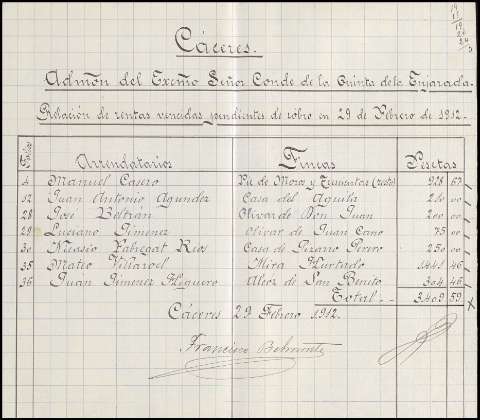 Cáceres.
Admón del Excmo Señor Conde de la Quinta de la Enjarada.
Relación de rentas vencidas pendientes de cobro en 29 de Febrero de 1912.
Arrendatarios Fincas Pesetas
4 Manuel Casero Pié de Moros y Trumantas (resto) 928 67
12 Juan Antonio Agundez Casa del Aguila 210 00
28 José Beltrán Olivar de Don Juan 200 00
29 Luciano Gimenez Olivar de Juan Cano 75 00
30 Nicasio Fabregat Rios Casa de Pizarro Perero 250 00
35 Mateo Villaroel Mira Hurtado 1441 46
36 Juan Jimenez Higuero Alcor de San Benito 304 46
Total 3.409 59
Cáceres 29 Febrero 1912.
Francisco Belmonte